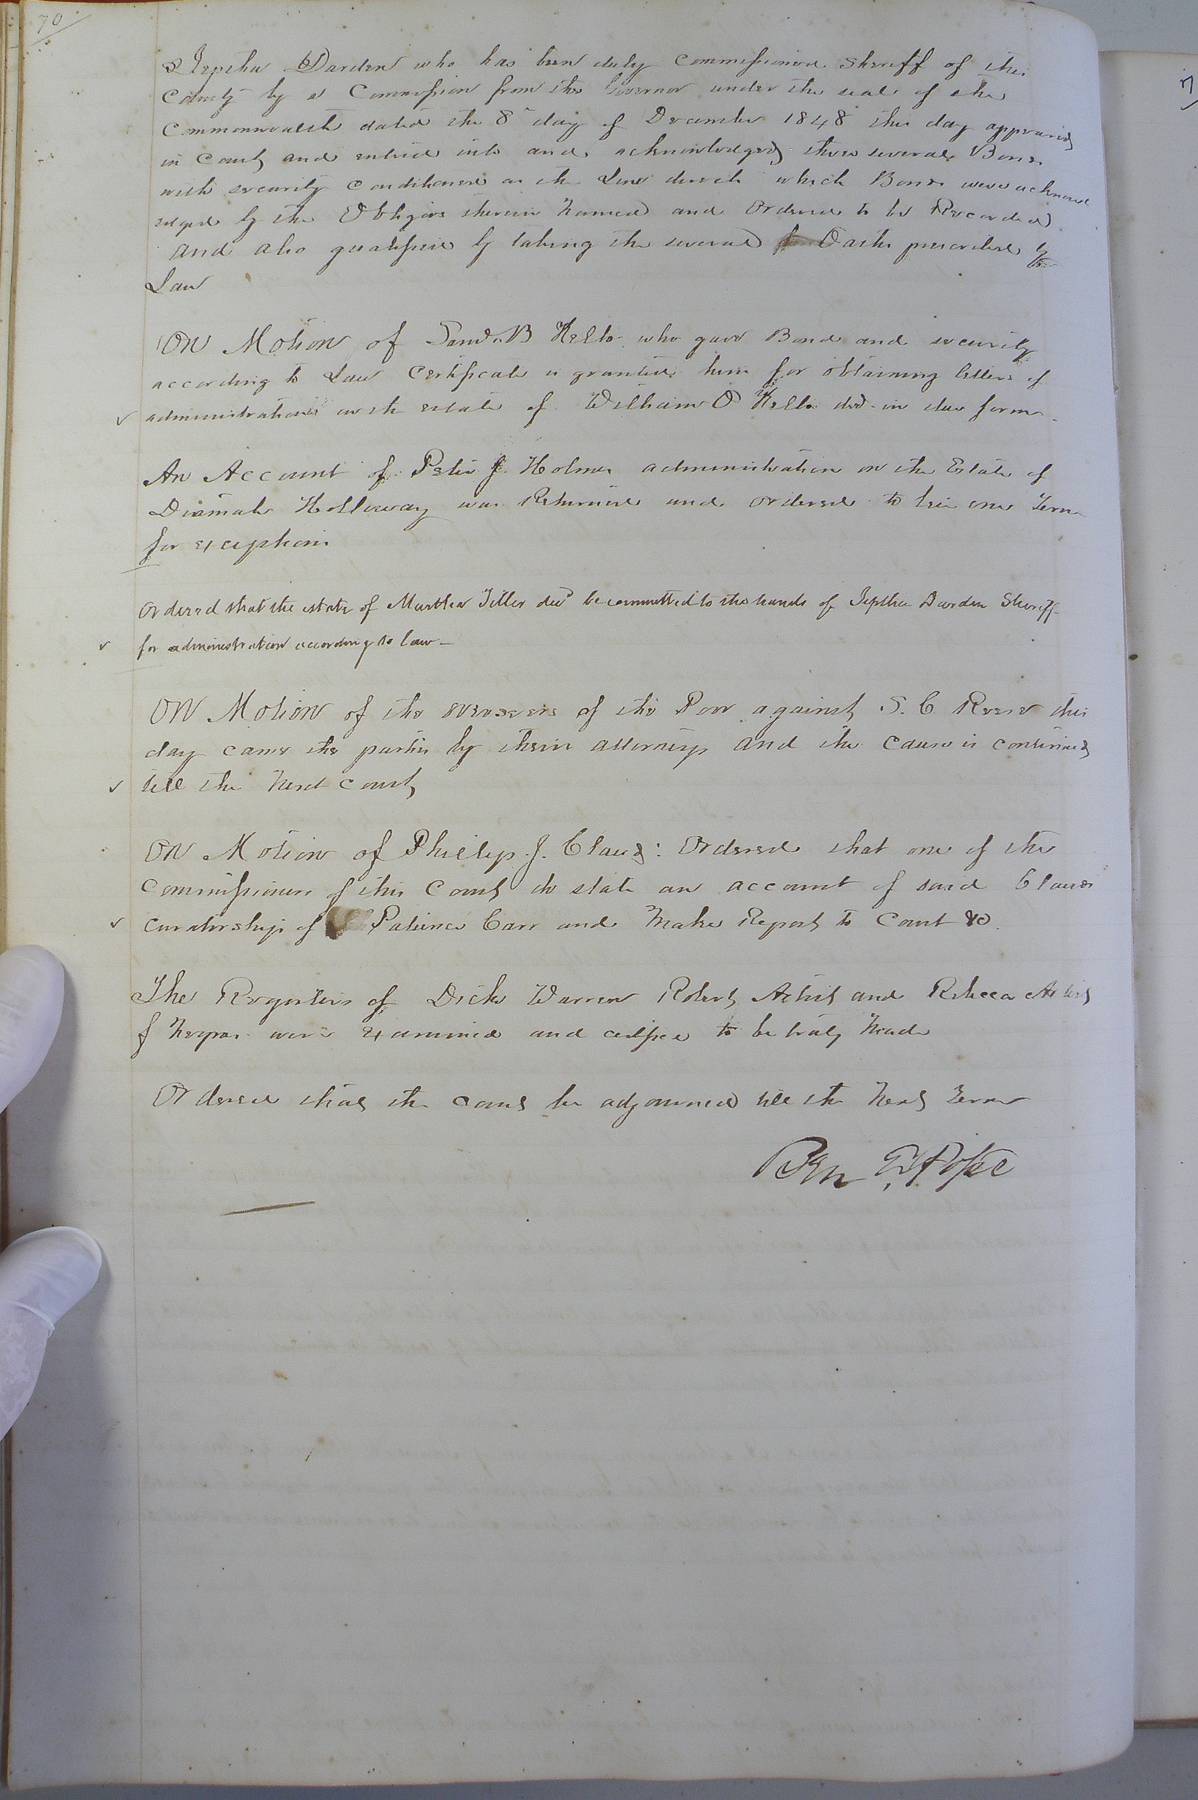 70
Jeptha Darden who has been duly commissioned Sheriff of this
County by a Commission from the Governor under the seal of the
Commonwealth dated the 8th day of December 1848 this day appeared
in Court and entered into and acknowledged three several Bonds
with security conditioned as the Law directs which Bonds were acknowl
edged by the Obligors therein named and Ordered to be Recorded
and also qualified by taking the several Oaths prescribed by
Law
On Motion of Saml. B Kello who gave Bond and security
according to Law Certificate is granted him for obtaining letters of
administration on the estate of William O Kello decd. in due form.
An Account of Peter J. Holmes administration on the Estate of
Holloway was Returned and ordered to lie one Term
for exceptions
Ordered that the estate of Martha Tiller decd be committed to the hands of Jeptha Darden Sheriff
for administration according to law
On Motion of the overseers of the Poor against S. C Reese this
day came the parties by their attorneys and the cause is continued
till the Next Court
On Motion of Phillip J. Claud: Ordered that one of the
Commissioners of this Court do state an account of said Clauds
curatorship of Patience Carr and Make Report to Court &c.
The Registers of Dick Warren Robert Artist and Rebecca Artist
f Negroes were examined and certified to be truly Made
Ordered that the Court be adjourned till the Next Term
Ben Pope